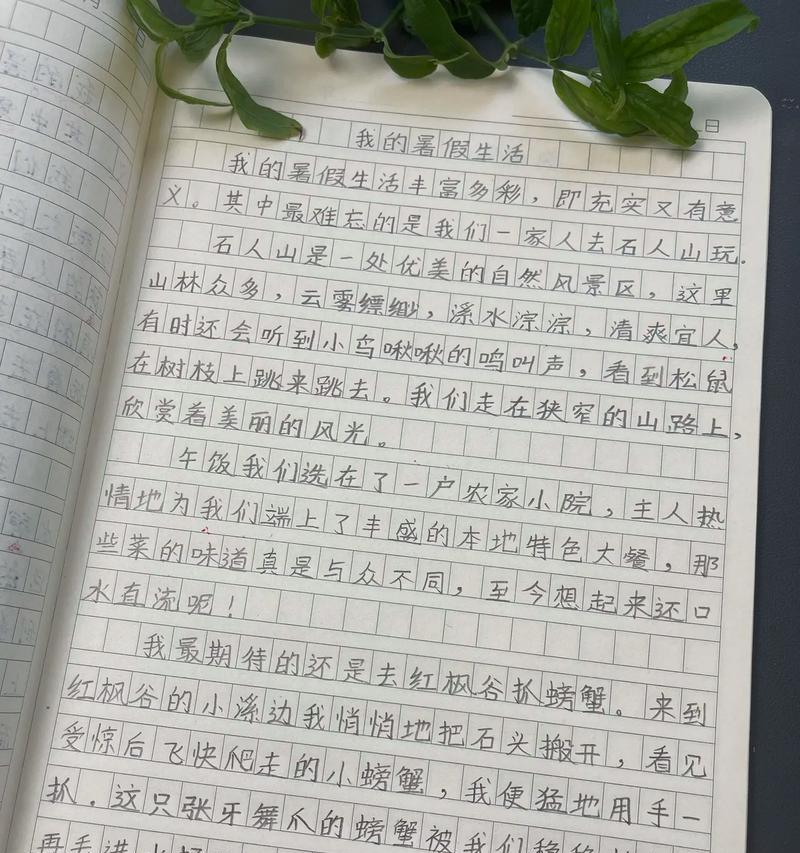 日
我的暑假生活
我的暑假生活丰富多彩，即充实又有意
义。其中最难忘的是我们一家人去石人山玩.
石人山是一处优美的自然风景区，这里
山林众多，云雾缥缈，溪水淙淙，清爽宜人，
有时还会听到小鸟啾啾的鸣叫声，看到松鼠
在树枝上跳来跳去。我们走在狭窄的山路上，
欣赏着美丽的风光。
午饭我们选在了一户农家小院，主人热
情地为我们端上了丰盛的本地特色大餐，那
些菜的味道真是与众不同，至今想起来还口
水直流呢！
我最期待的还是去红枫谷抓螃蟹。来到
红枫谷的小溪边我悄悄地把石头搬开，看见
受惊后飞快爬走的小螃蟹，我便猛地用手一
抓.这只张牙舞爪的螃蟹被我们稳稳